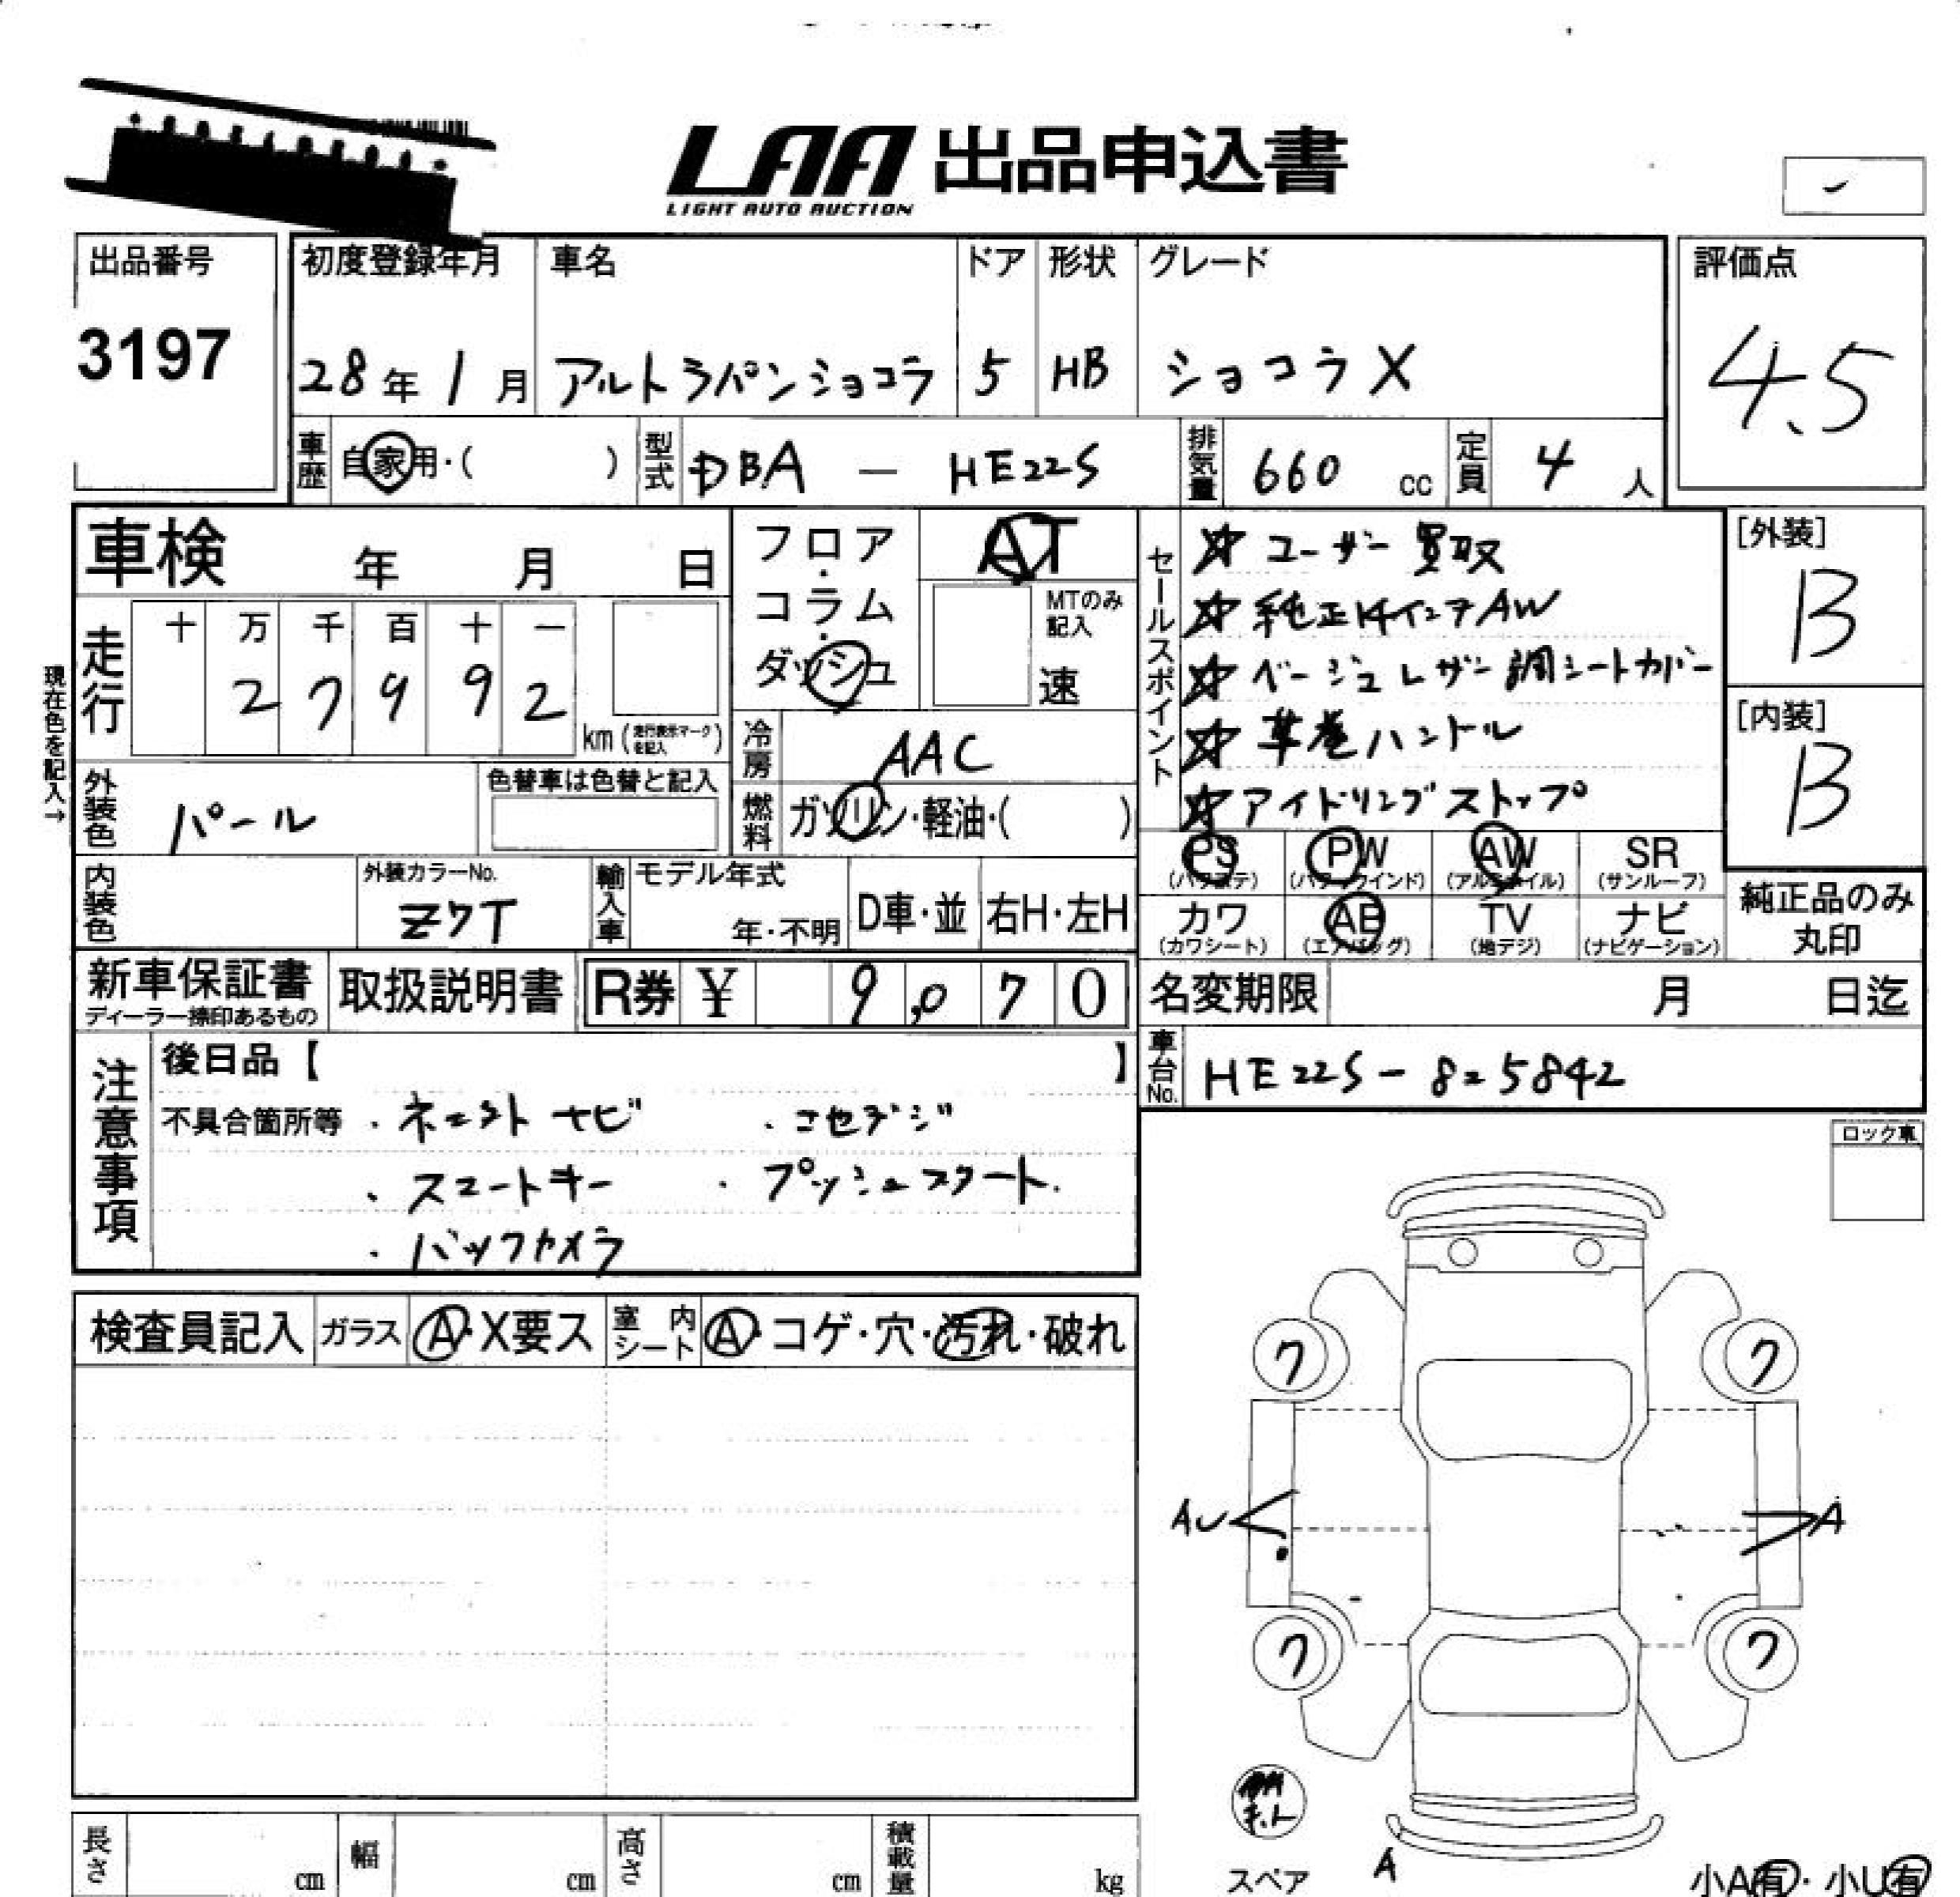 LAA 出品申込書
LIGHT AUTO AUCTION
出品番号
3197
初度登録年月
28年1月
車名
アルトラパンショコラ
ドア
5
形状
HB
グレード
ショコラX
評価点
4.5
車歴 自家用・( )
型式 DBA - HE22S
排気量 660 cc
定員 4 人
車検 年 月 日
走行 十 万 千 百 十 一
2 7 9 9 2
km (走行表示マークを記入)
現在色を記入→
フロア・コラム・ダッシュ
AT
MTのみ記入
速
冷房 AAC
燃料 ガソリン・軽油・( )
外装色 パール
色替車は色替と記入
内装色
外装カラーNo.
Z7T
輸入車
モデル年式
年・不明
D車・並
右H・左H
セールスポイント
☆ ユーザー買取
☆ 純正14インチAW
☆ ベージュレザー調シートカバー
☆ 革巻ハンドル
☆ アイドリングストップ
[外装]
B
[内装]
B
PS PW AW SR
(パワステ) (パワーウインド) (アルミホイル) (サンルーフ)
カワ AB TV ナビ
(カワシート) (エアバッグ) (地デジ) (ナビゲーション)
純正品のみ
丸印
新車保証書
ディーラー捺印あるもの
取扱説明書
R券 ¥ 9,070
名変期限 月 日迄
車台No. HE22S-825842
注意事項
後日品【 】
不具合箇所等 ・ネエクト ナビ ・フセグデジ
・スマートキー ・プッシュスタート.
・バックカメラ
ロック車
検査員記入
ガラス A・X要ス
室内シート A・コゲ・穴・汚れ・破れ
ク ク
AU A
ク ク
スペア
A
小A有・小U有
長さ cm
幅 cm
高さ cm
積載量 kg